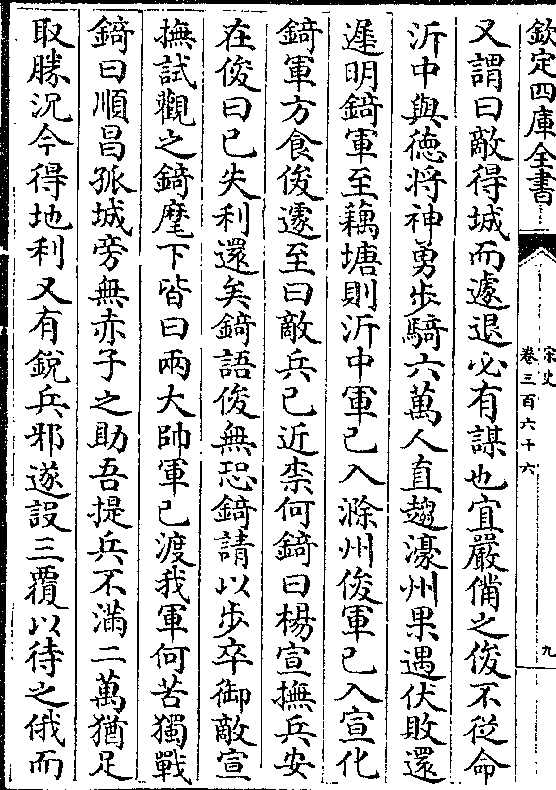 欽定四庫全書
宋史
卷三百六十六
九
又謂曰敵得城而遽退必有謀也宜嚴備之俊不從命
沂中與徳將神勇步騎六萬人直趨濠州果遇伏敗還
遲明錡軍至藕塘則沂中軍已入滁州俊軍已入宣化
錡軍方食俊遽至曰敵兵已近柰何錡曰楊宣撫兵安
在俊曰已失利還矣錡語俊無恐錡請以步卒御敵宣
撫試觀之錡麾下皆曰兩大帥軍已渡我軍何苦獨戰
錡曰順昌孤城旁無赤子之助吾提兵不滿二萬猶足
取勝況今得地利又有銳兵邪遂設三覆以待之俄而